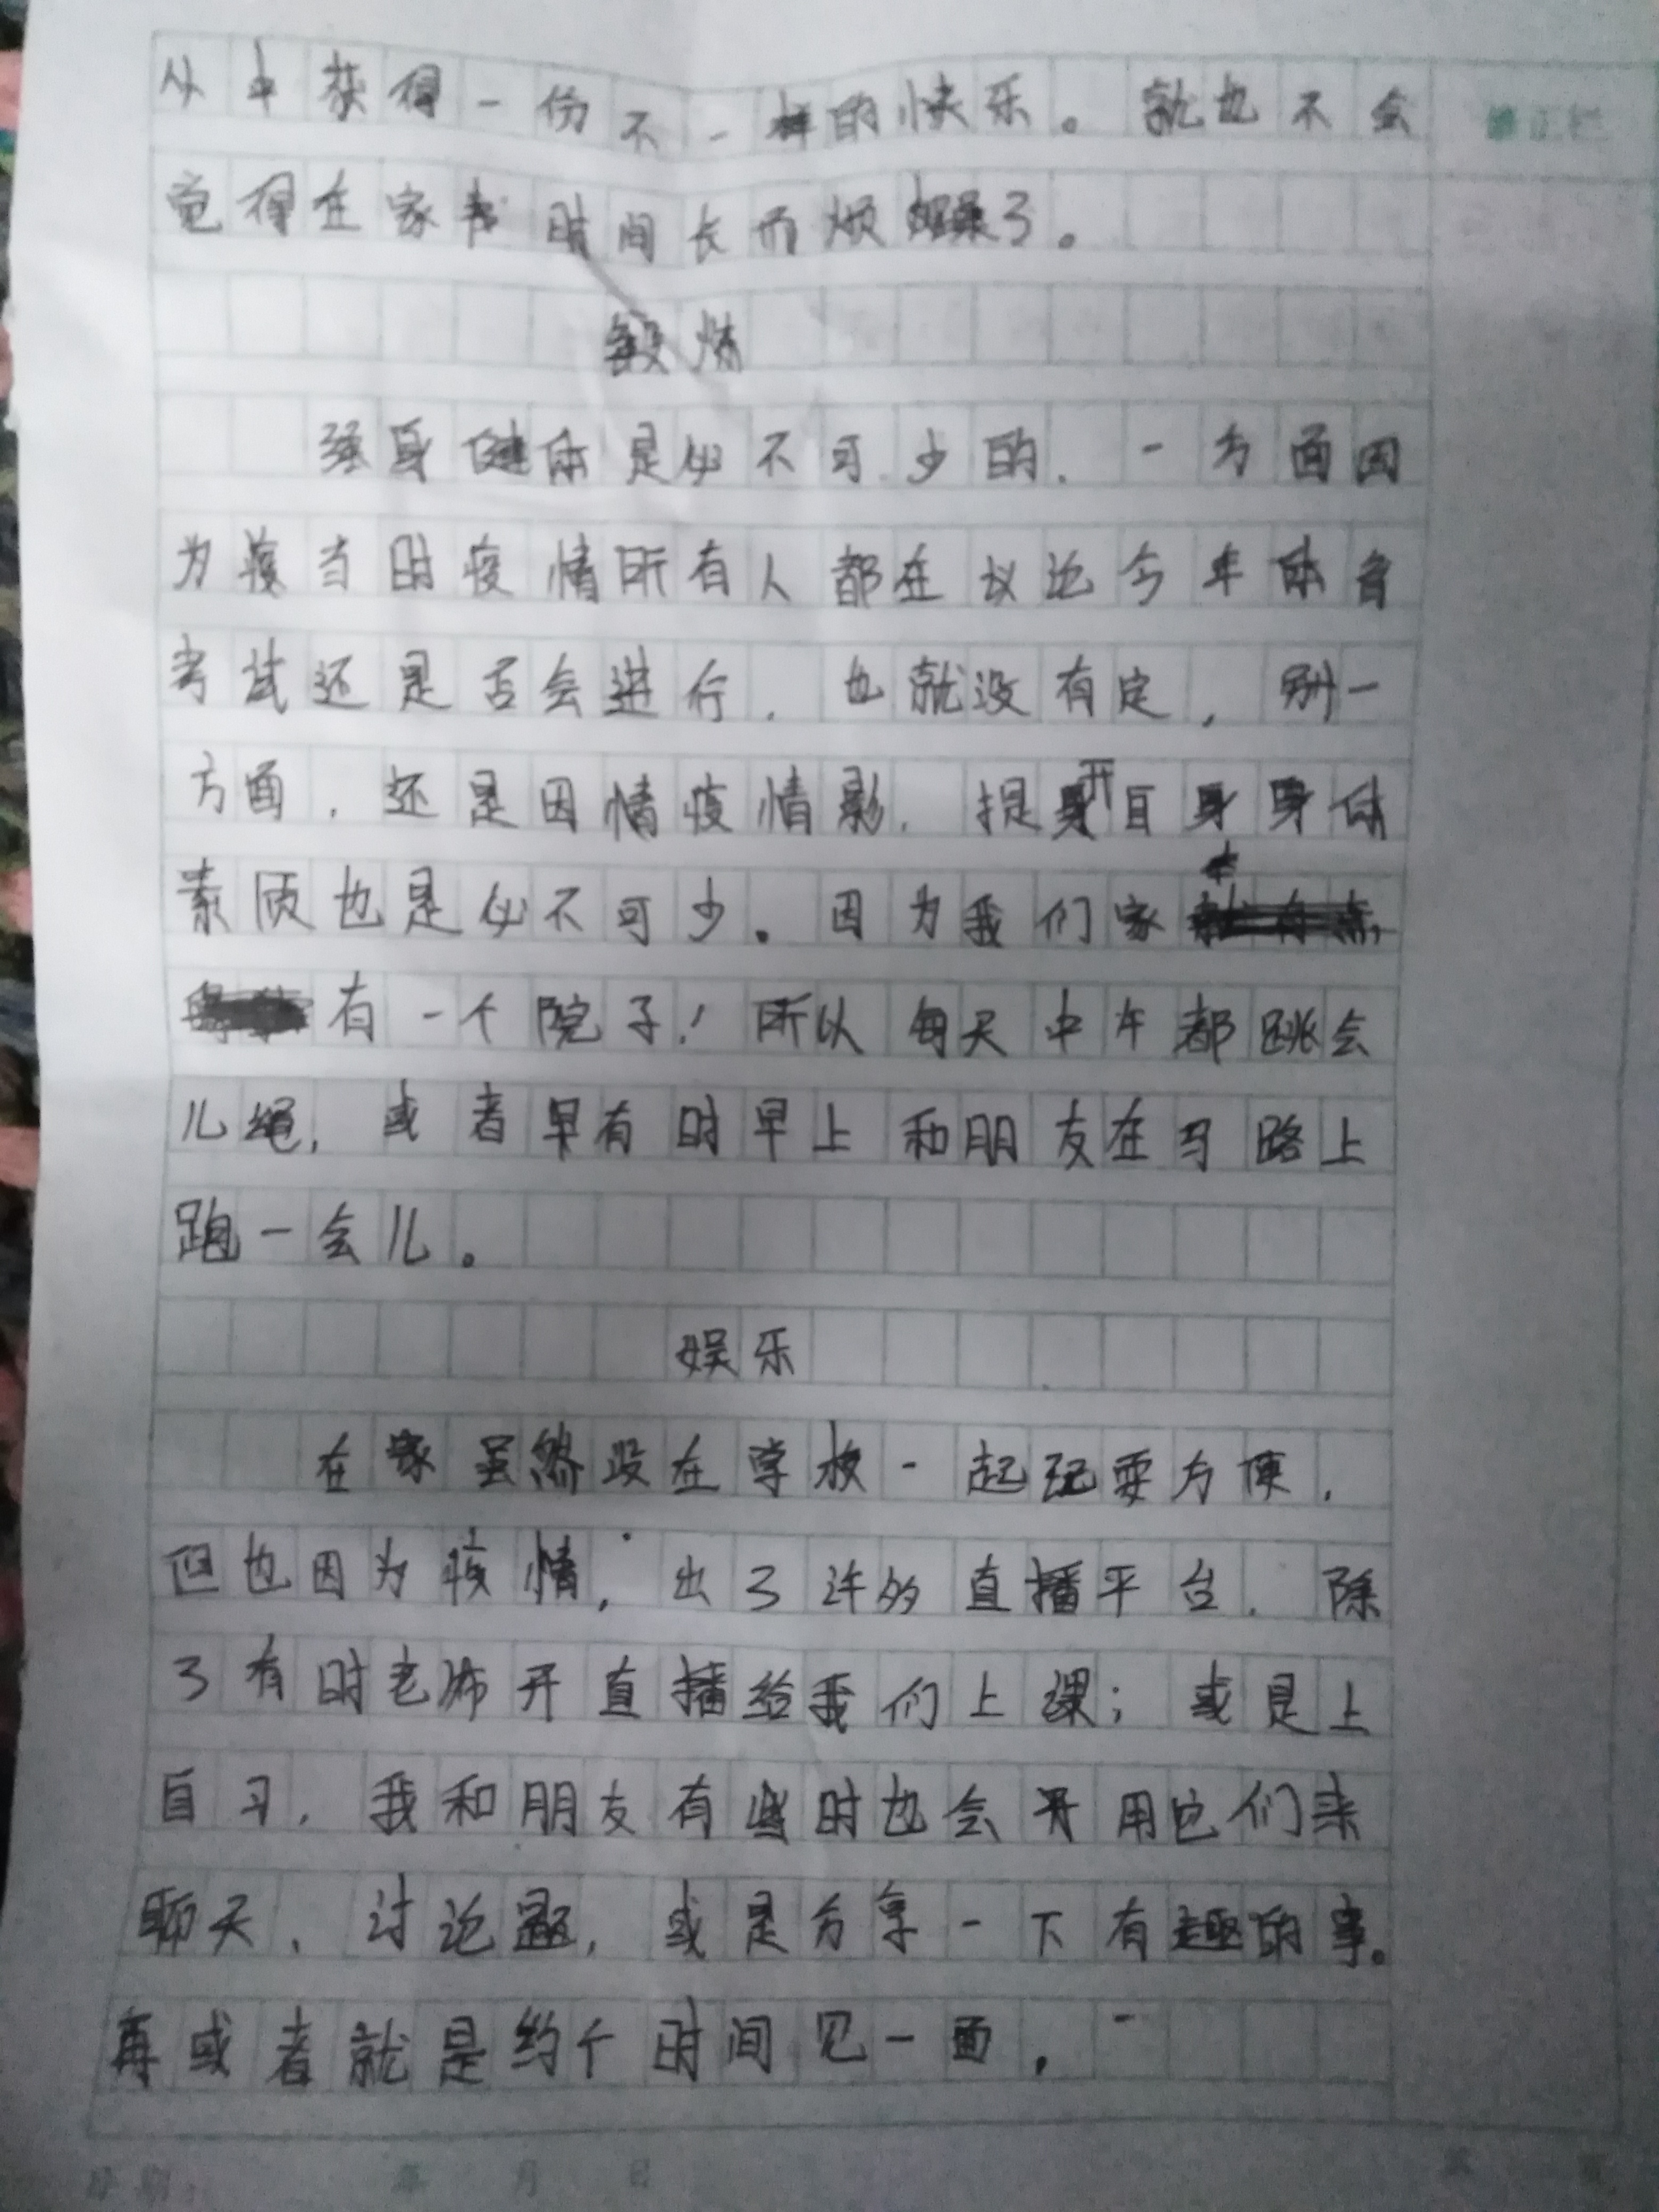 从中获得一份不一样的快乐。就也不会
觉得在家 时间长而烦躁了。
锻炼
强身健体是必不可少的，一方面因
为疫当时疫情所有人都在议论今年体育
考试还是否会进行，也就没有定，别一
方面，还是因情疫情影，提升自身身体
素质也是必不可少。因为我们家
有一个院子！所以每天中午都跳会
儿绳，或者早有时早上和朋友在马路上
跑一会儿。
娱乐
在家虽然没在学校一起玩耍方便，
但也因为疫情，出了许多直播平台，除
了有时老师开直播给我们上课；或是上
自习，我和朋友有些时也会开用它们来
聊天、讨论题，或是分享一下有趣的事。
再或者就是约个时间见一面。